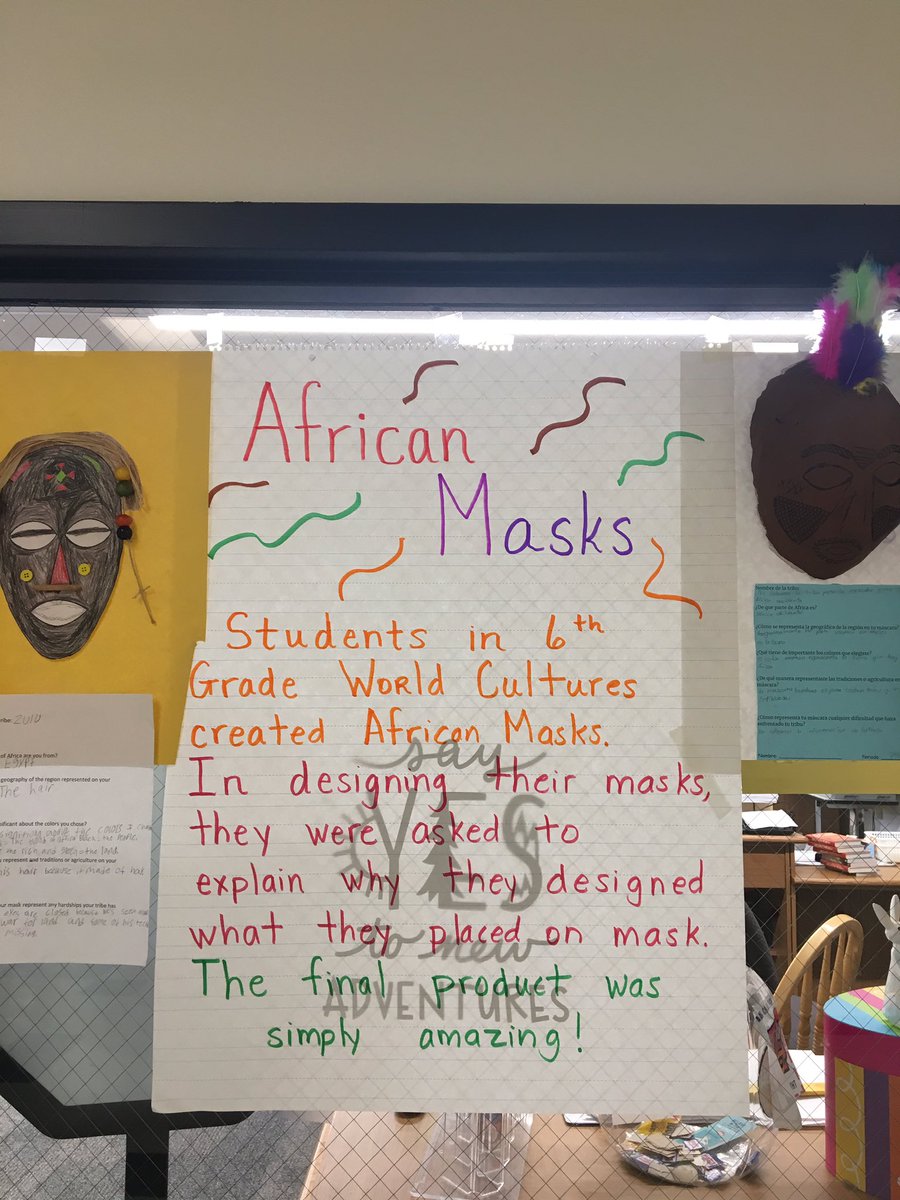 African
Masks
Students in 6th
Grade World Cultures
created African Masks.
In designing their masks,
they were asked to
explain why they designed
what they placed on mask.
The final product was
simply amazing!
say
YES
to new
ADVENTURES
ribe: ZULU
of Africa are you from?
Egypt
geography of the region represented on your
The hair
nificant about the colors you chose?
represent and traditions or agriculture on your
hair because it made of hair
our mask represent any hardships your tribe has
missing
Nombre de la tribu
¿De que parte de Africa es?
¿Cómo se representa la geográfica de la región en tu máscara?
¿Qué tiene de importante los colores que elegiste?
¿De qué manera representaste las tradiciones o agricultura en
máscara?
¿Cómo representa tu máscara cualquier dificultad que haya
enfrentado tu tribu?